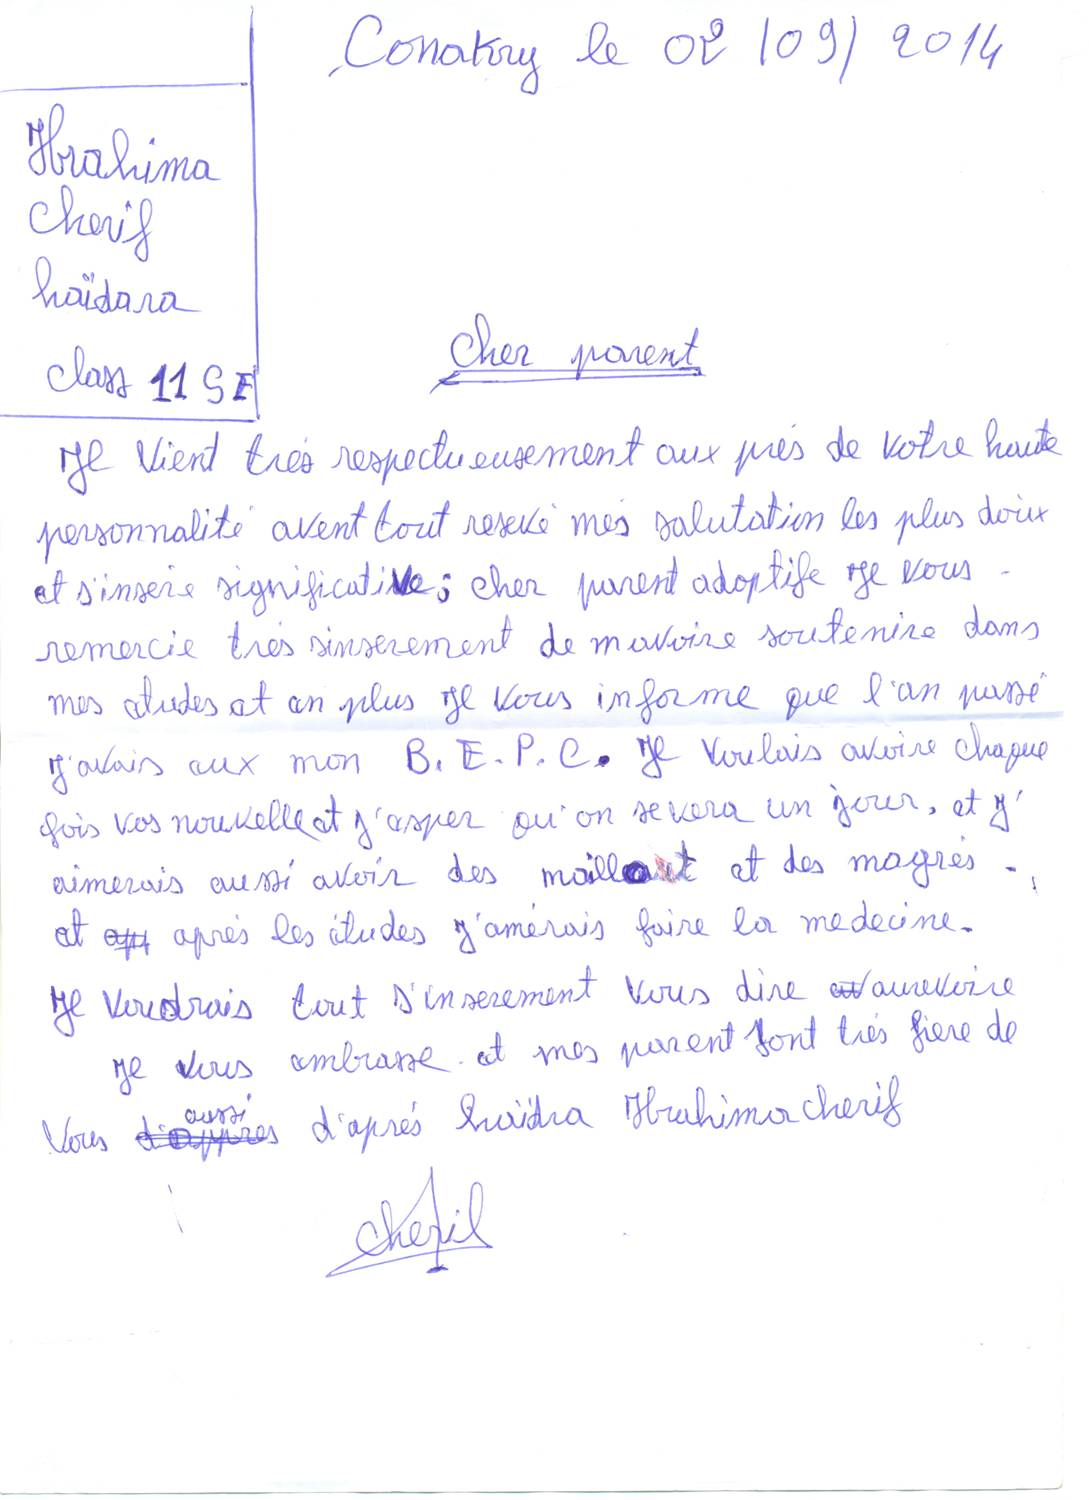 Conakry le 02 /09/ 2014
Ibrahima
cherif
haïdara
class 11 SE
Cher parent
Je Vient trés respectueusement aux prés de votre haute
personnalité avent tout resevé més salutation les plus doux
et s'inseré significative; cher parent adoptife je vous -
remercie trés sinserement de mavoire soutenire dans
mes etudes et en plus je vous informe que l'an passé
j'avais aux mon B.E.P.C. je voulais avoire chaque
fois vos nouvelle et j'esper qu'on se vera un jour, et j'
aimerais aussi avoir des maillot et des magrés -,
et après les études j'amérais faire la medecine.
Je Voudrais tout s'inserement vous dire aurevoire
je vous ambrasse et mes parent sont trés fiere de
Vous aussi d'aprés haïdra Ibrahima cherif
cherif